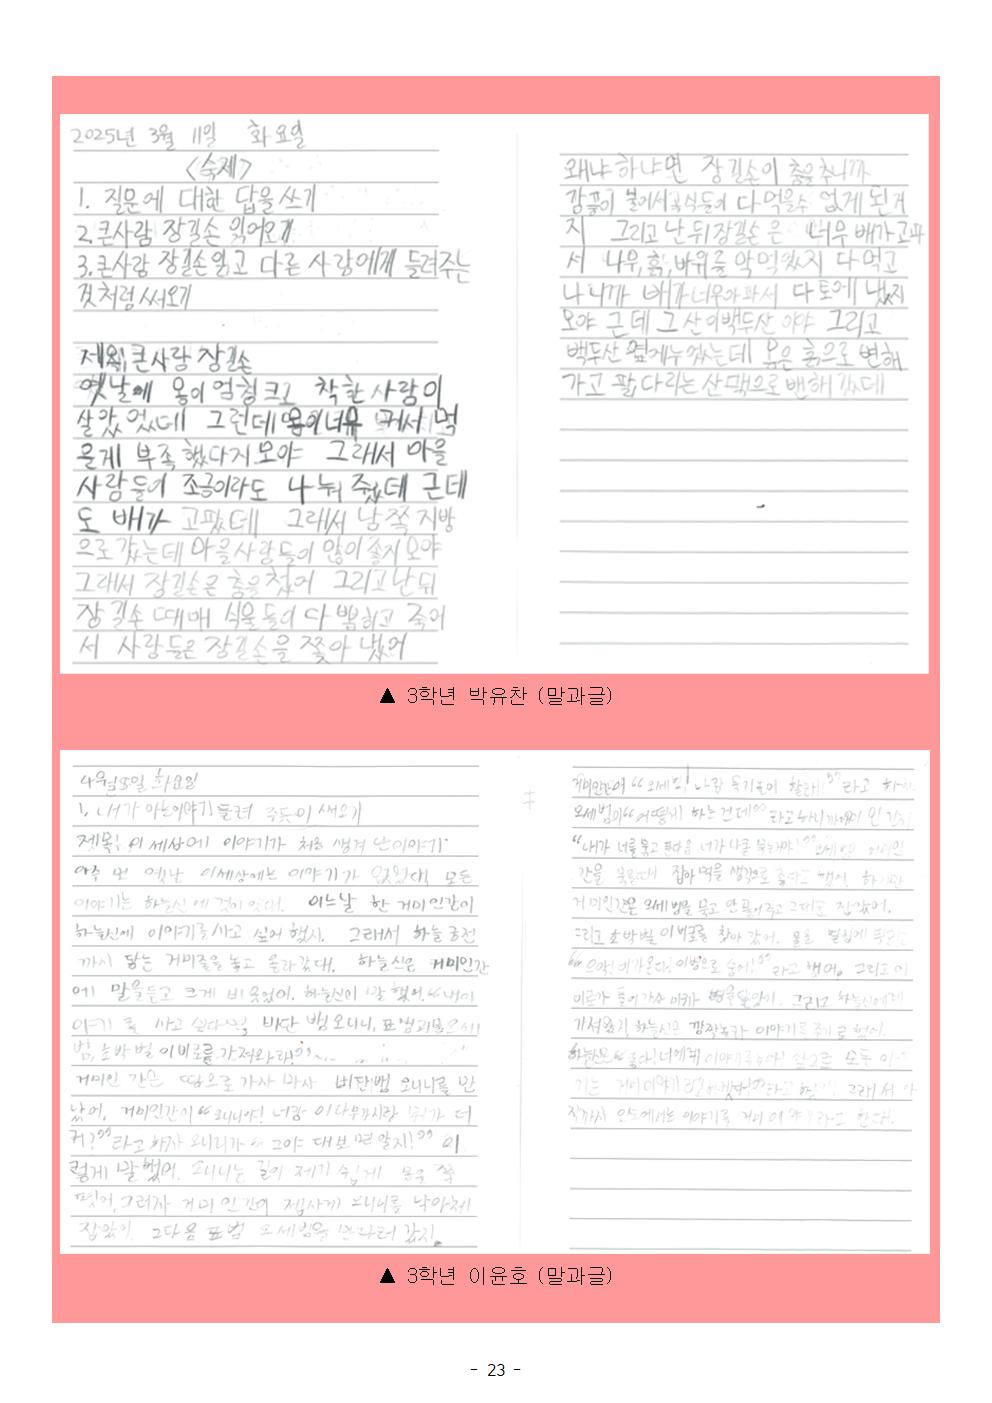 2025년 3월 11일 화요일
<숙제>
1. 질문에 대한 답을 쓰기
2. 큰사람 장길손 읽어오기
3. 큰사람 장길손읽고 다른 사람에게 들려주는
것처럼 써오기
제목: 큰사람 장길손
옛날에 몸이 엄청 크고 착한 사람이
살았었데 그런데 몸이 너무 커서 먹
을게 부족했다지모야 그래서 마을
사람들이 조금이라도 나눠 줬데 근데
도 배가 고팠데 그래서 남쪽 지방
으로 갔는데 마을사람들이 많이 줬지모야
그래서 장길손은 춤을 췄어 그리고 난 뒤
장길손 때매 식물들이 다 죽어
서 사람들은 장길손을 쫓아 냈어
왜냐하냐면 장길손이 춤을추니까
불어서곡식들이 다 먹을수 없게 된거
지 그리고 난 뒤 장길손은 너무 배가고파
서 나무, 흙, 바위를 다 먹고
나니까 배가 너무아파서 다 토에 냈지
모야 근데 그 산이백두산 이야 그리고
백두산 옆에누웠는데 몸은 흙으로 변해
가고 팔 다리는 산맥으로 변해 갔데
▲ 3학년 박유찬 (말과글)
4월 일 화요일
1. 내가 아는이야기 들려 주듯이 써오기
제목: 이 세상에 이야기가 처음 생겨 난이야기
아주 먼 옛날 이세상에는 이야기가 없었대. 모든
이야기는 하늘신 에 것이 었대. 어느날 한 거미인간이
하늘신에 이야기를사고 싶어 했지. 그래서 하늘 궁전
까지 닿는 거미줄을 놓고 올라갔대. 하늘신은 거미인간
에 말을듣고 크게 비웃었어. 하늘신이 말 했어. "내이
야기 를 사고 싶다면 비단 뱀 오니니, 표범
벌, 이비로를 가져와라!"
거미인 간은 땅으로 가자 마자 비단뱀 오니니를 만
났어. 거미인간이 "오니니야! 너랑 이나무가지랑 뭐가 더
커?" 라고 하자 오니니가 "그야 대보 면 알지!" 이
렇게 말 했어. 오니니는 길이 재기 쉽게 몸을 쭉
폈어. 그러자 거미 인간이 잽싸게 오니니를 낚아채
잡았어. 그다음 표범 오세범을 만나러 갔지.
거미인간이 "오세범! 나랑 묶기놀이 할래!" 라고 하
오세범이 "어떻게 하는 건데" 라고하니까
"내가 너를묶고 그다음 너가 나를 묶는거야!"
잡아 먹을 생각으로 좋다고 했어. 하지만
거미인간은 오세범을 묶고 안 풀어주고 그대로 잡았어.
그리고 이비로를 찾아 갔어. 물을 벌집에
"으악! 비가온다! 이병으로 숨어!" 라고 했어. 그리고 이
비로가 들어가자 마자 그리고 하늘신에게
가져왔지 하늘신은 깜짝놀라 이야기를 주기로 했어.
하늘신은 "좋다! 너에게 이야기를주마! 앞으로 모든 이야
기는 거미이야기라고 라고 그래 서 아
직까지 이야기를 거미 이 야기라고 한대.
▲ 3학년 이윤호 (말과글)
- 23 -